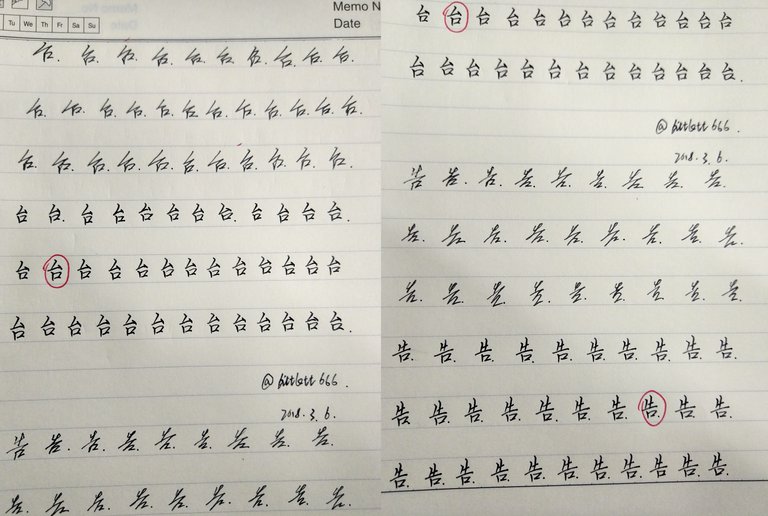 Memo N
Tu We Th Fr Sa Su
Date
台. 台. 台. 台. 台. 台. 台. 台. 台. 台.
台. 台. 台. 台. 台. 台. 台. 台. 台. 台. 台. 台.
台. 台. 台. 台. 台. 台. 台. 台. 台. 台. 台.
台 台 台 台 台 台 台 台 台 台 台 台.
台 台 台 台 台 台 台 台 台 台 台 台 台
台 台 台 台 台 台 台 台 台 台 台 台 台.
2018.3.6.
告 告. 告. 告. 告. 告. 告. 告. 告.
告. 告. 告. 告. 告. 告. 告. 告. 告.
台 台 台 台 台 台 台 台 台 台 台 台 台
台 台 台 台 台 台 台 台 台 台 台 台 台.
2018.3.6.
告 告. 告. 告. 告. 告. 告. 告. 告.
告. 告. 告. 告. 告. 告. 告. 告. 告.
告. 告. 告. 告. 告. 告. 告. 告. 告.
告. 告. 告. 告. 告. 告. 告. 告. 告. 告.
告. 告. 告. 告. 告. 告. 告. 告. 告. 告.
告. 告. 告. 告. 告. 告. 告. 告. 告. 告. 告.